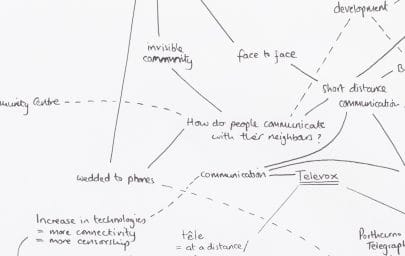 development
invisible
community
face to face
short distance
communication
B
munity Centre
How do people communicate
with their neighbors?
wedded to phones
communication
Televox
Increase in technologies
= more connectivity
= more censorship
têle
= at a distance/
Porthcurno
Telegraph